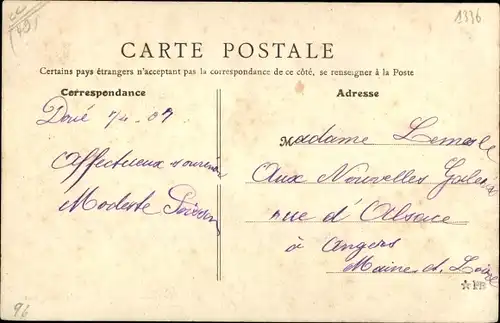 (49)
1336
CARTE POSTALE
Certains pays étrangers n'acceptent pas la correspondance de ce côté, se renseigner à la Poste
Correspondance
Adresse
Doué 7/4 - 07
Affectueux souvenir
Modeste
Madame Lemesle
Aux Nouvelles Galeries
rue d'Alsace
à Angers
Maine et Loire
96